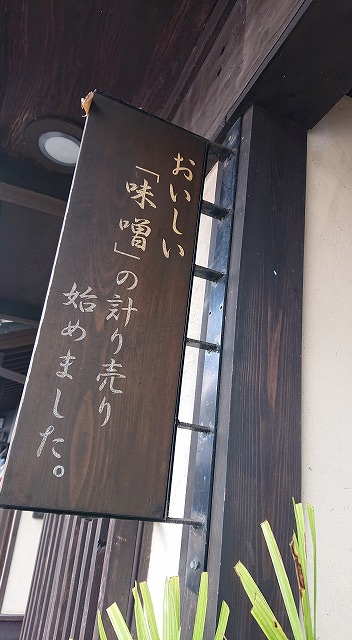 おいしい
「味噌」の計り売り
始めました。